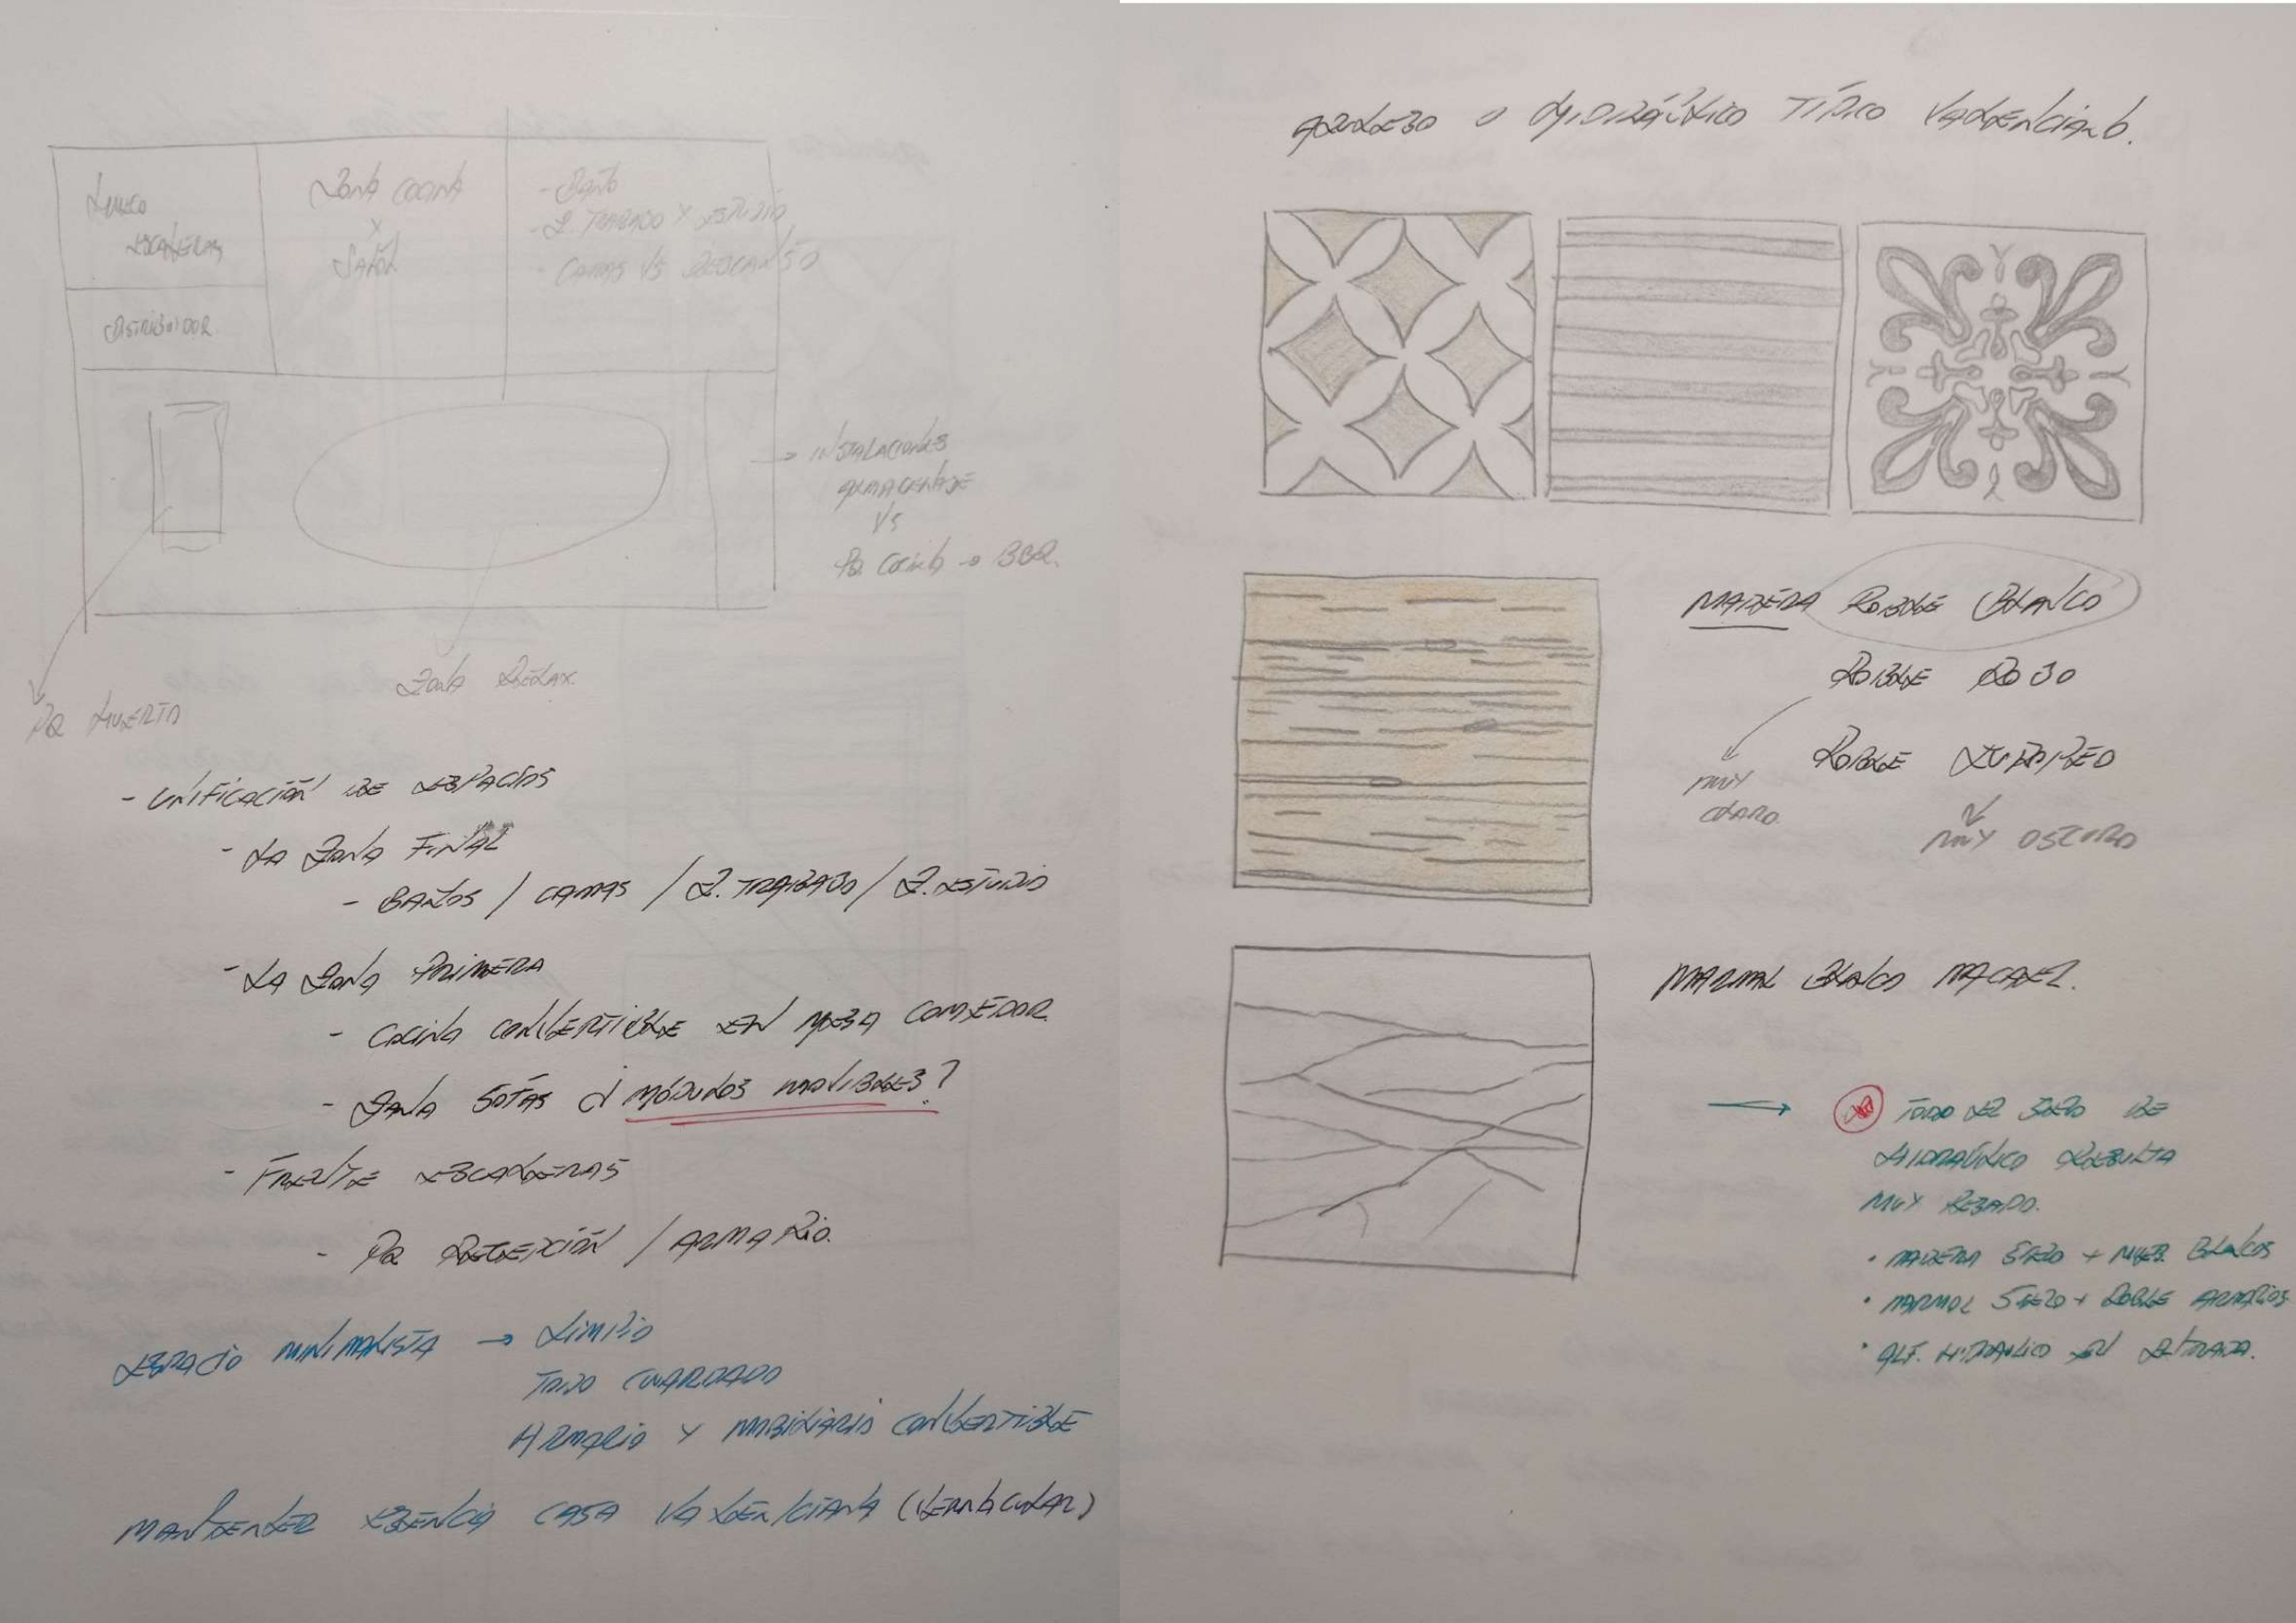 HUECO
ESCALERAS
DISTRIBUIDOR
ZONA COCINA
Y
SALÓN
- BAÑO
- Z. TRABAJO Y ESTUDIO
- CAMAS VS DESCANSO
→ INSTALACIONES
ALMACENAJE
VS
PQ. COCINA → BBQ.
ZONA RELAX
PQ HUERTO
- UNIFICACIÓN DE ESPACIOS
- LA ZONA FINAL
- BAÑOS / CAMAS / Z. TRABAJO / Z. ESTUDIO
- LA ZONA PRIMERA
- COCINA CONVERTIBLE EN MESA COMEDOR
- ZONA SOFÁS Ó MÓDULOS MOVIBLES?
- FRENTE ESCALERAS
- PQ RECEPCIÓN / ARMARIO.
ESPACIO MINIMALISTA → LIMPIO
TODO GUARDADO
ARMARIO Y MOBILIARIO CONVERTIBLE
MANTENER ESENCIA CASA VALENCIANA (VERNACULAR)
AZULEJO O HIDRÁULICO TÍPICO VALENCIANO.
MADERA ROBLE BLANCO
ROBLE ROJO
ROBLE EUROPEO
MUY
CLARO
MUY OSCURO
MARMOL BLANCO MACAEL.
→ TODO EL SUELO DE
HIDRAÚLICO RESULTA
MUY PESADO.
• MADERA SUELO + MUEB. BLANCOS
• MARMOL SUELO + ROBLE ARMARIOS
• ALF. HIDRAULICO EN ENTRADA.